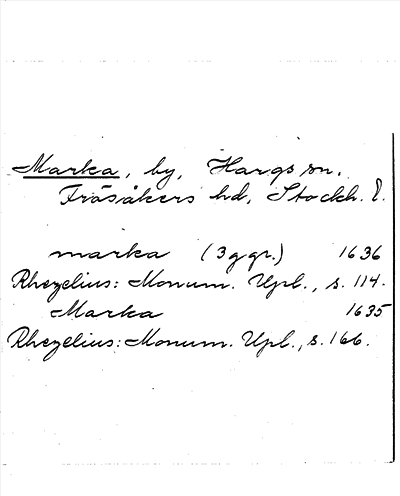 Marka, by, Hargs sn.
Frösåkers hd, Stockh. l.
marka (3 ggr.) 1636
Rhezelius: Monum. Upl., s. 114.
Marka 1635
Rhezelius: Monum. Upl., s. 166.